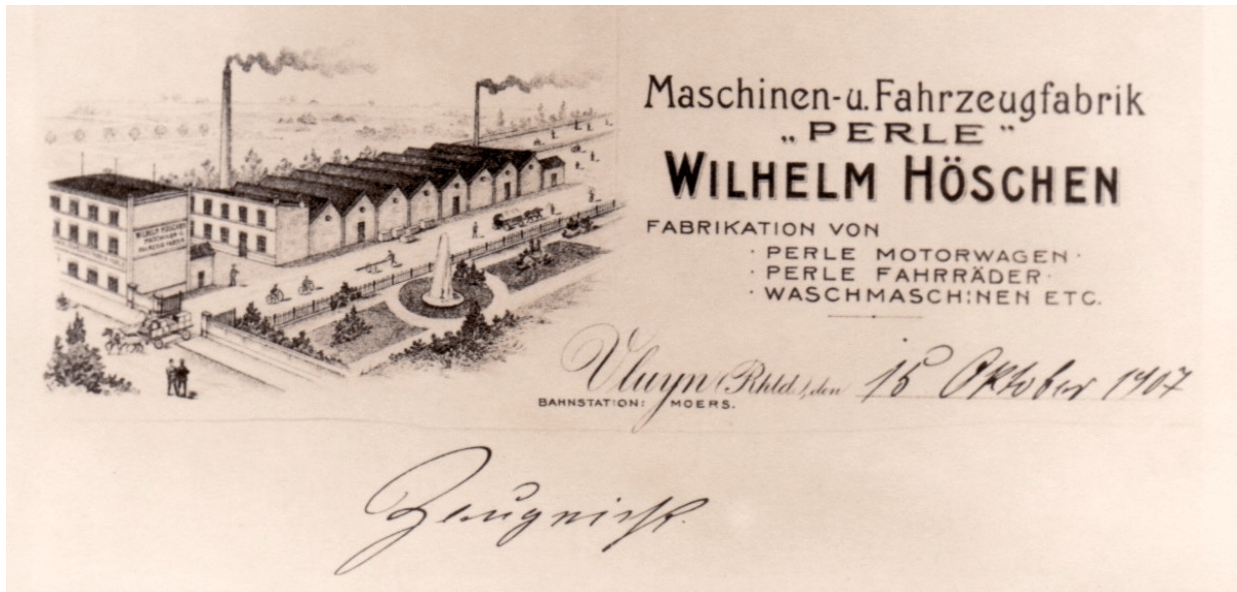 Maschinen-u. Fahrzeugfabrik
„PERLE"
WILHELM HÖSCHEN
FABRIKATION VON
· PERLE MOTORWAGEN ·
· PERLE FAHRRÄDER ·
· WASCHMASCHINEN ETC.
Vluyn (Rhld.), den 15 Oktober 1907
BAHNSTATION: MOERS.
Zeugniss.
WILHELM HÖSCHEN